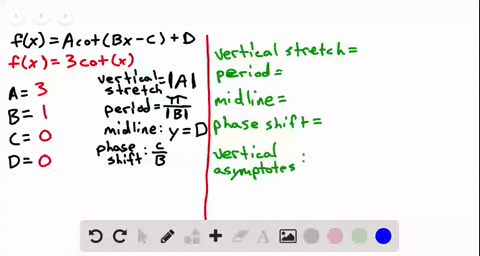 f(x) = A cot(Bx - C) + D
f(x) = 3 cot(x)
A = 3
B = 1
C = 0
D = 0
vertical stretch = |A|
period = π/|B|
midline: y = D
phase shift: C/B
vertical stretch =
period =
midline =
phase shift =
vertical asymptotes :
A